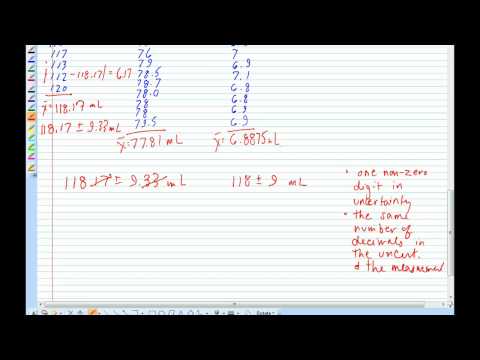 117 76 7
113 79 6.9
|112 - 118.17| = 6.17 78.5 7.1
120 78.7 6.8
78.0 6.8
x̄ = 118.17 mL 78 6.9
118.17 ± 9.33 mL 78 6.9
79.5
x̄ = 77.81 mL x̄ = 6.8875 mL
118.17 ± 9.33 mL 118 ± 9 mL
• one non-zero
digit in
uncertainty
• the same
number of
decimals in
the uncert.
& the measurement